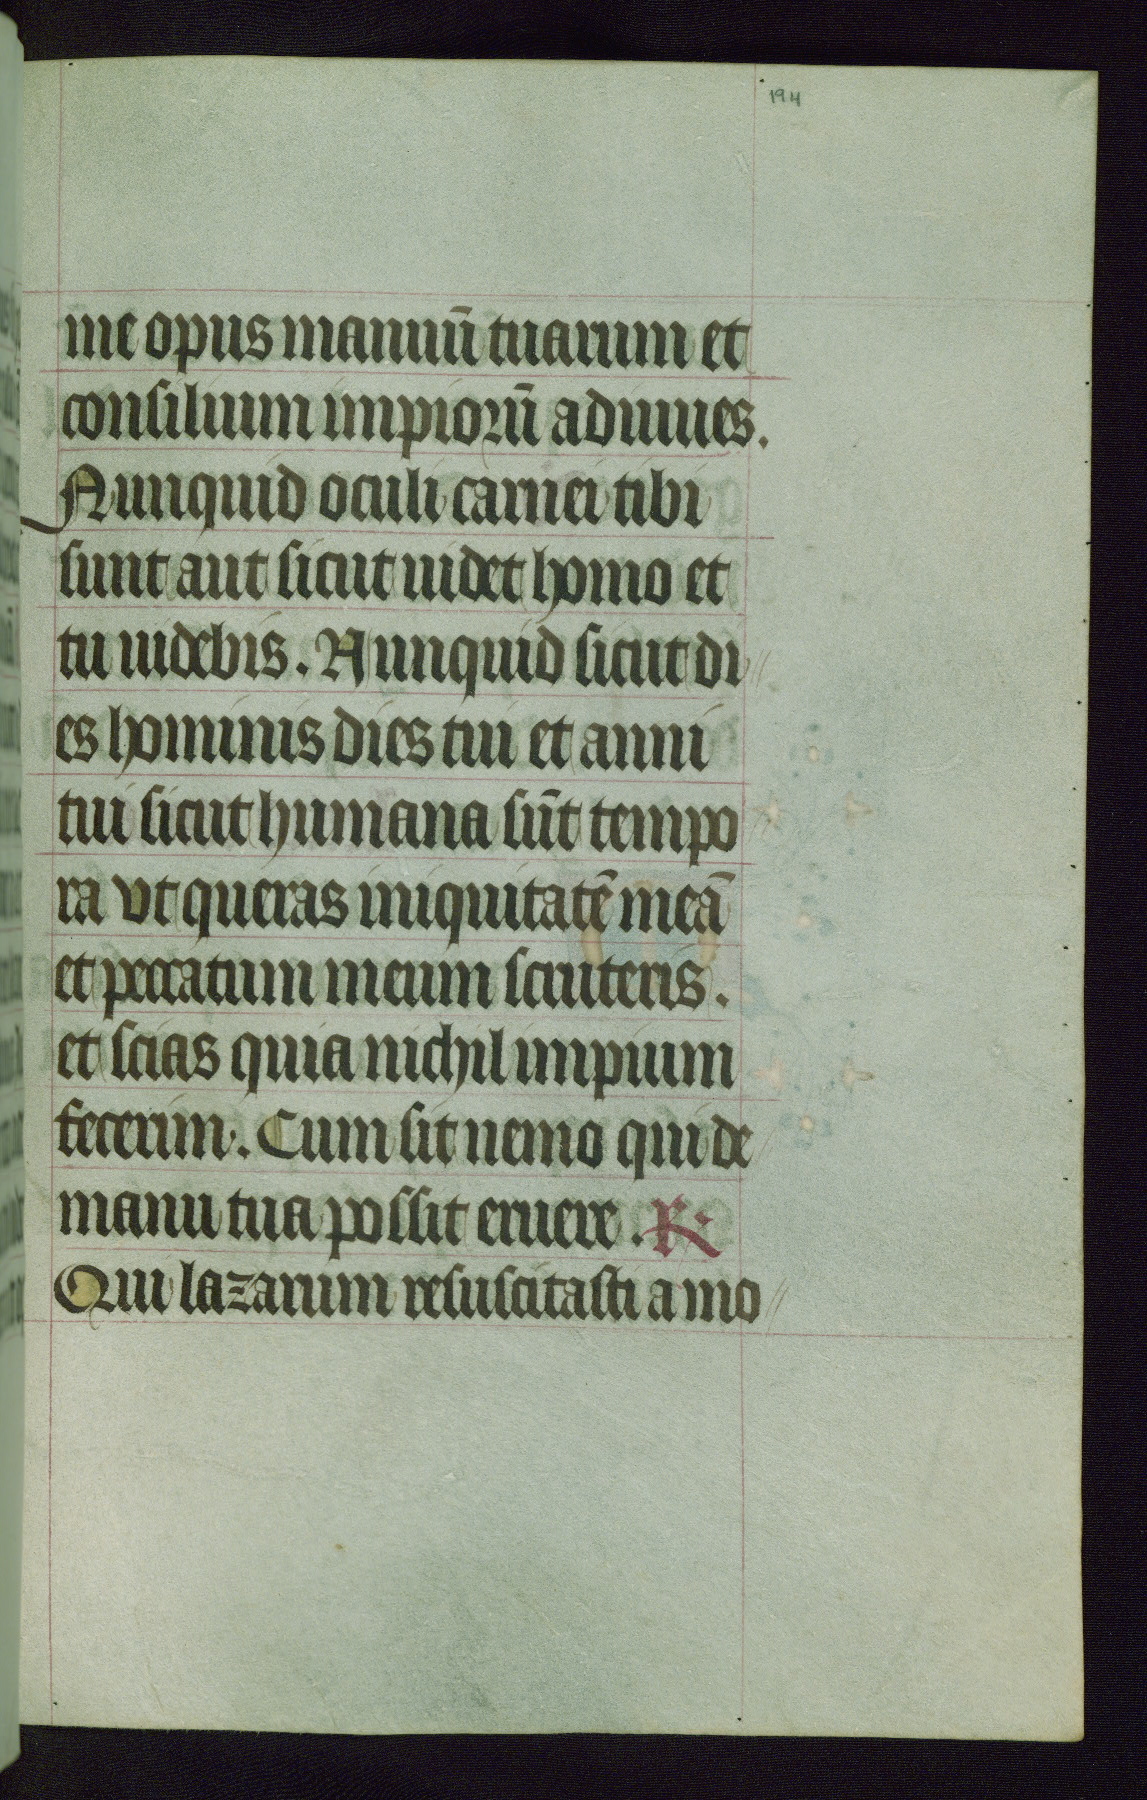 194
me opus manuū tuarum et
consilium impiorū adiuues.
Nunquid oculi carnei tibi
sunt aut sicut uidet homo et
tu uidebis. Nunquid sicut di
es hominis dies tui et anni
tui sicut humana sūt tempo
ra vt queras iniquitatē meā
et peccatum meum scruteris.
et scias quia nichil impium
fecerim. Cum sit nemo qui de
manu tua possit eruere. R
Qui lazarum resuscitasti a mo